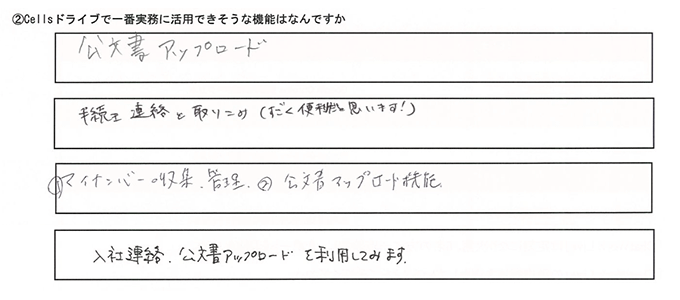 ②Cellsドライブで一番実務に活用できそうな機能はなんですか
公文書アップロード
手続き連絡と取りこみ（すごく便利だと思います！）
①マイナンバーの収集、管理、② 公文書アップロード機能
入社連絡、公文書アップロードを利用してみます。